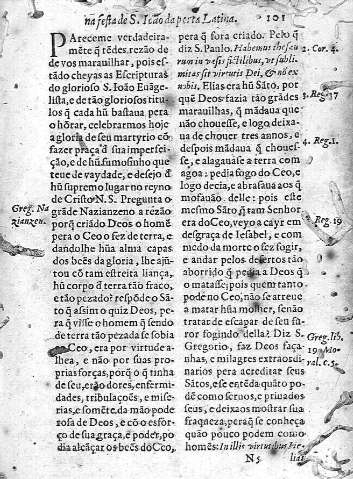 na festa de S. Ioão da porta Latina. 101
PAreceme verdadeira-
mẽte q̃ tẽdes rezão de
de vos marauilhar, pois es-
tão cheyas as Escripturas
do glorioso S. Ioão Euãge-
lista, e de tão gloriosos titu-
los q̃ cada hũ bastaua pera
o hõrar, celebrarmos hoje
a gloria de seu martyrio cõ
fazer praça da sua imperfei-
ção, e de hũ fumosinho que
teue de vaydade, e desejo d
hũ supremo lugar no reyno
de Cristo N. S. Pregunta o
grãde Nazianzeno a rezão
porq̃ criado Deos o homẽ
pera o Ceo o fez de terra, e
dandolhe hũa alma capas
dos bẽs da gloria, lhe ajũ-
tou cõ tam estreita liança,
hũ corpo d terra tão fraco,
e tão pezado? respõde o Sã-
to q̃ assim o quiz Deos, pe-
ra q̃ visse o homem q̃ sendo
de terra tão pezada se sobia
ao Ceo, era por virtude a-
lhea, e não por suas pro-
prias forças, porq̃ o q̃ tinha
de seu, erão dores, enfermi-
dades, tribulações, e mise-
rias, e somẽte da mão pode
rosa de Deos, e cõ o esfor-
ço de sua graça, e poder, po
dia alcãçar os beẽs do Ceo,
Greg. Na
zianzen.
pera q̃ fora criado. Pelo q̃
diz S. Paulo. Habemus thesau
rum in vasis fictilibus, vt subli-
mitas sit virtutis Dei, & nõ ex
nobis. Elias era hũ Sãto, por
quẽ Deos fazia tão grãdes
marauilhas, q̃ mãdaua que
não chouesse, e logo deixa-
ua de chouer tres annos, e
despois mãdaua q̃ choues-
se, e alagauase a terra com
agoa: pedia fogo do Ceo, e
logo decia, e abrasaua aos q̃
mofauão delle: pois este
mesmo Sãto, q̃ tam Senhor
era do Ceo, veyo a cayr em
desgraça de Iesabel, e com
medo da morte o fez fugir,
e andar pelos desertos tão
aborrido q̃ pedia a Deos q̃
o matasse; pois quem tanto
pode no Ceo, não se atreue
a matar hũa molher, senão
tratar de escapar de seu fu-
ror fogindo della? Diz S.
Gregorio, faz Deos faça-
nhas, e milagres extraordi-
narios pera acreditar seus
Sãtos, e se entẽda quãto po-
dẽ como seruos, e priuados
seus, e deixa os mostrar sua
fraqueza, pera q̃ se conheça
quão pouco podem como
homẽs: In illis virtutibus He-
2. Cor. 4.
3. Reg. 17
4. Reg. 1.
Reg. 19
Greg. lib.
19. Mo-
ral. c. 5.
N 5 lias